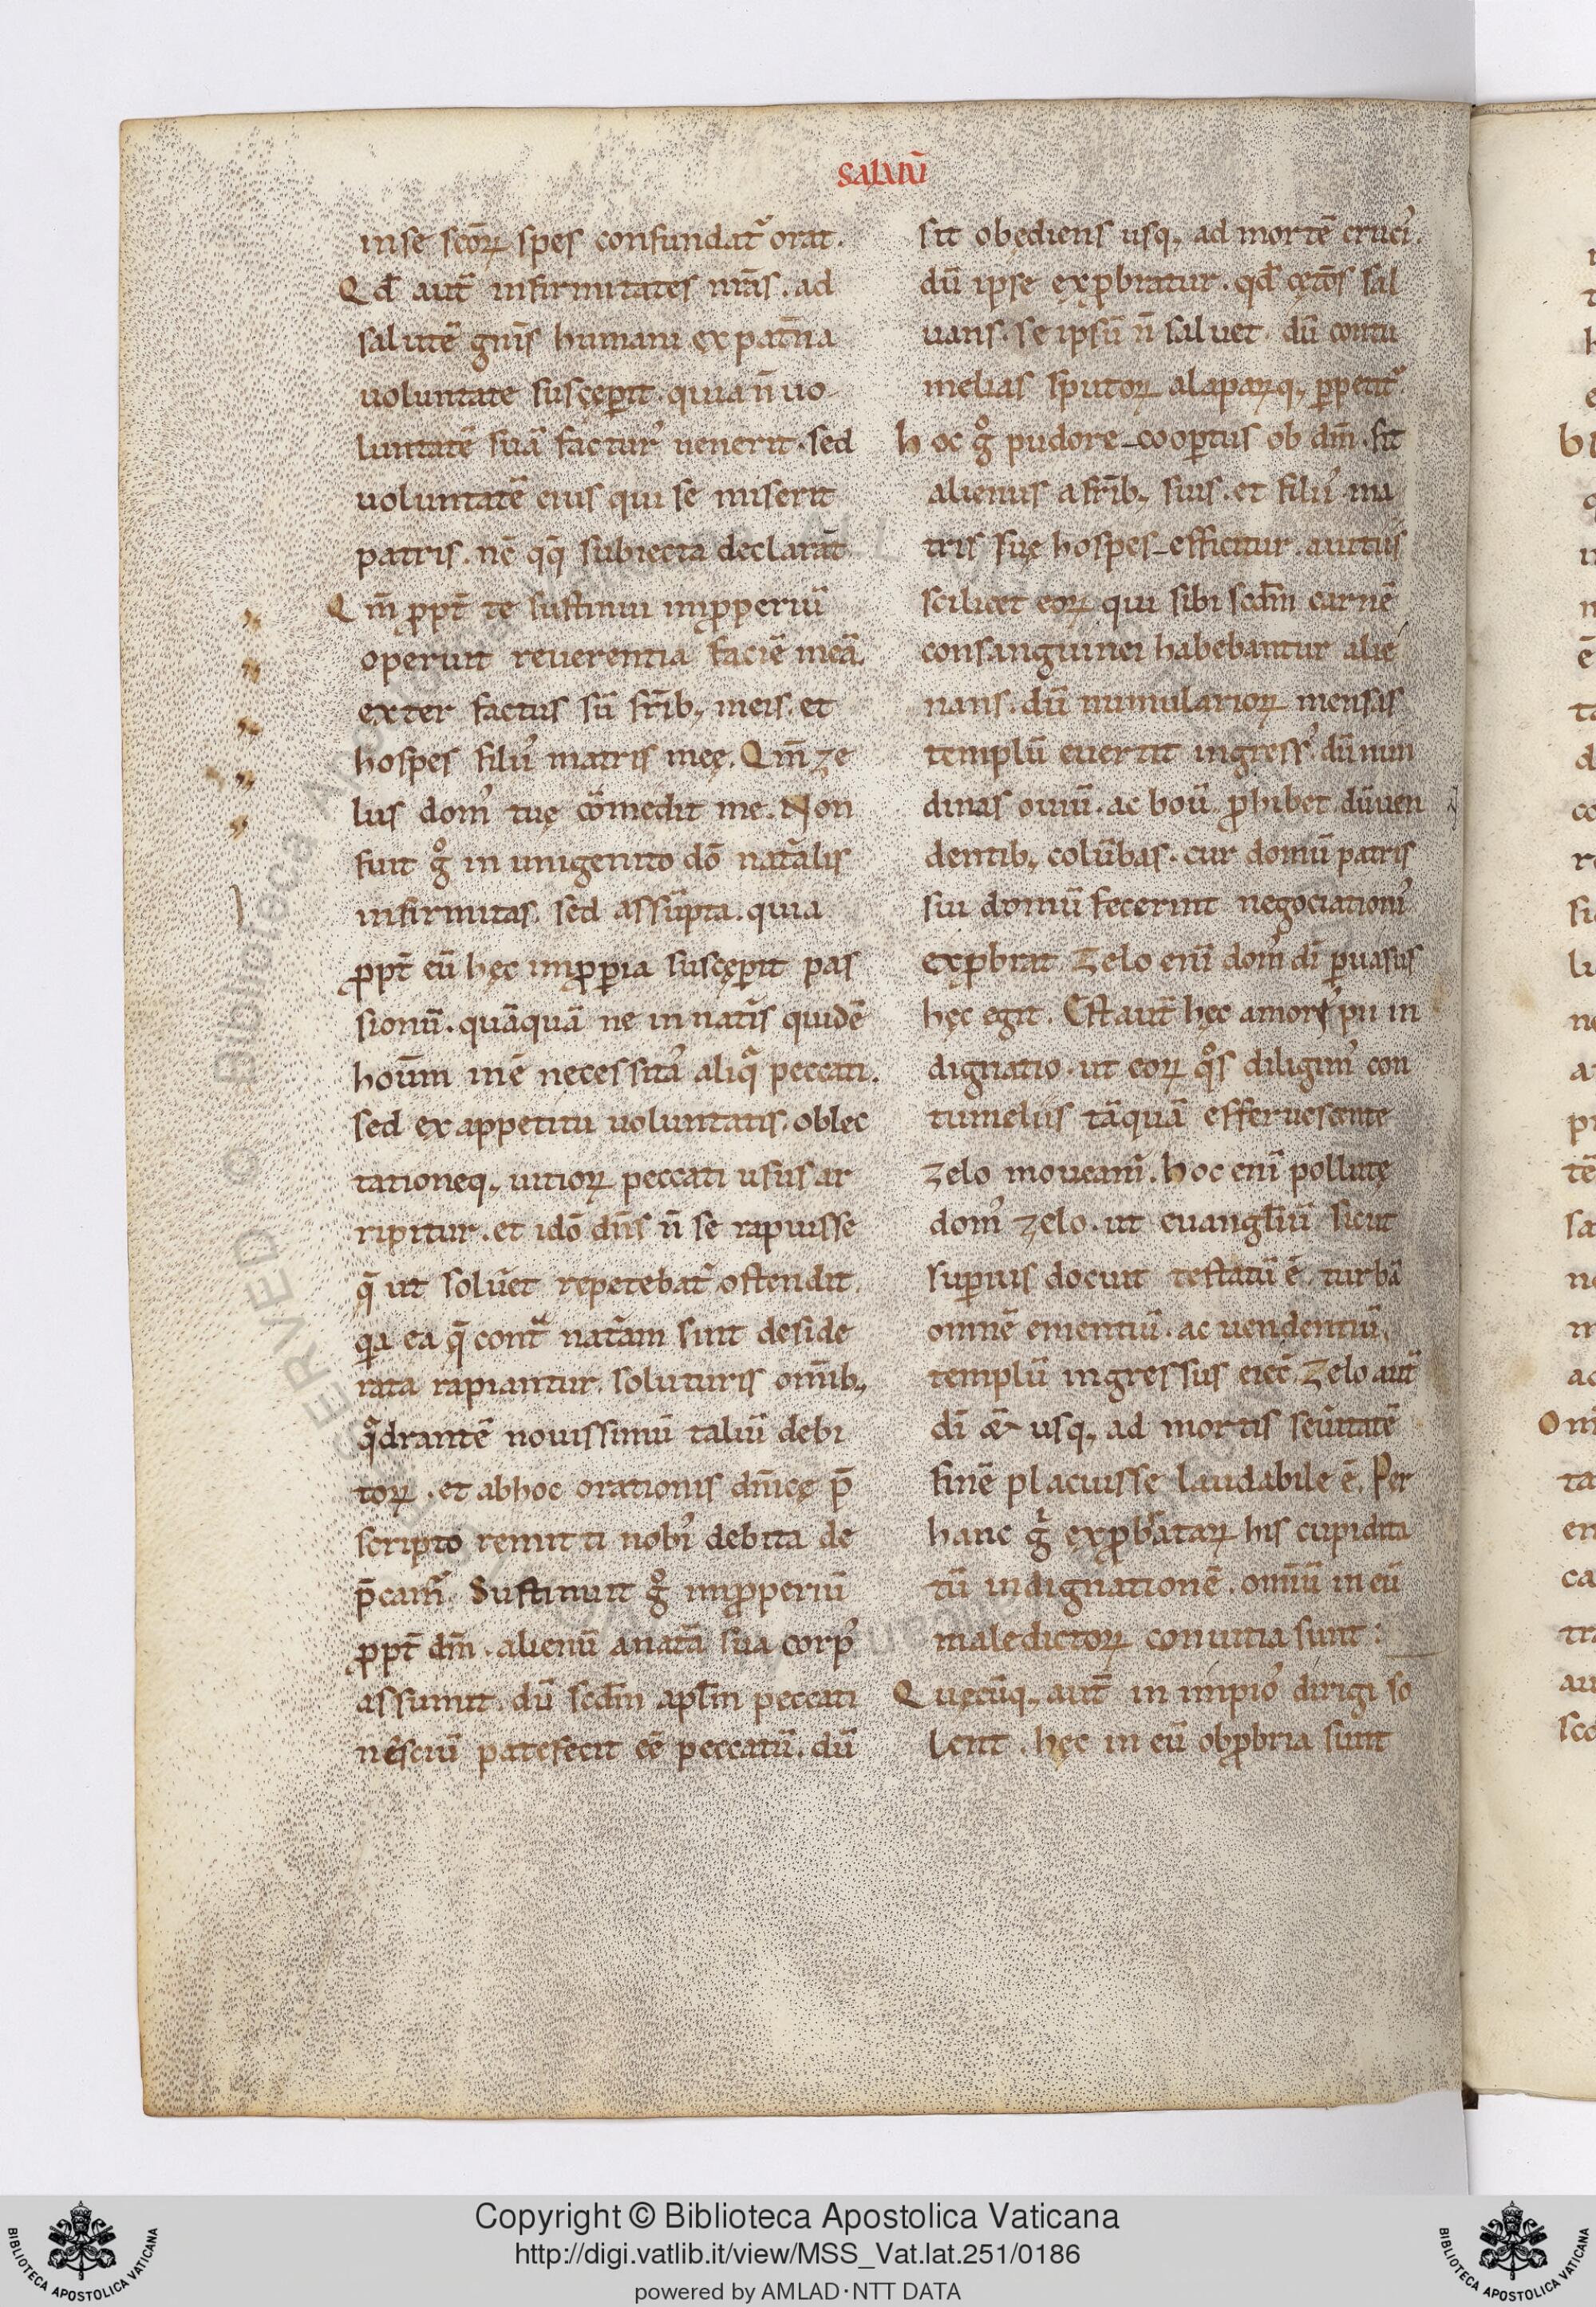 salvuṁ
in se scōꝝ spes confundat᷑ orat.
Qd̄ aut̄ infirmitates nr̄as. ad
salutē gn̄is humani ex pat̄na
uoluntate suscęp̲it. quia n̄ uo
luntatē suā factur᷒ uenerit. sed
uoluntatē eius qui se miserit
patris. nē qq̄ subiecta declarāt
Qm̄ ꝓpt̄ te sustinui imꝓperiū
operuit reuerentia faciē meā.
exter factus sū fr̄ib; meis. et
hospes filiis᷒ matris meę. Qm̄ ze
lus dom᷒ tuę cōmedit me. Non
fuit gͦ in unigenito dō nat᷑alis
infirmitas. sed assūpta. quia
ꝓpt̄ eū hęc imꝓꝑia suscęꝑit pas
sionū. quāquā ne in nat᷑is quidē
hoūm inē necessita᷒ aliqͣ peccati.
sed ex appetitu uoluntatis. oblec
tationeq; uitioꝝ peccati usus ar
ripitur. et idō dn̄s n̄ se rapuisse
q̄ ut solu̅et repetebat᷑ ostendit.
qͥa ea q̄ contͣ nat᷑am sunt deside
rata rapiantur. soluturis om̄ib;
qͣdrantē nouissimū taliū debi
toꝝ. et ab hoc orationis dn̄icę p̄
scripto remitti nobi᷒ debita de
p̄cam᷒. Sustinuit gͦ imꝓperiū
ꝓpt̄ dm̄. alienū a nat᷑a sua corp᷒
assumit. dū scdm̄ apl̄m peccati
nesciū patefecit eē peccatū. dū
fit obędiens usq; ad mortē cruci᷒.
dū ipse exꝓbratur. qd̄ cęt̄os sal
uans. se ipsū n̄ saluet. dū contu
melias sputoꝝ alaparꝝq; ꝑpetit᷑
hoc gͦ pudore cooꝑtus ob dm̄. fit
alienus a fr̄ib; suis. et filii᷒ ma
tris suę hospes efficitur. auitus
scilicet eoꝝ qui sibi scdm̄ carnē
consanguinei habebantur alie
nans. dū numularioꝝ mensas
templū euertit ingress᷒. dū nun
dinas ouiū. ac boū ꝓhibet. dū uen
dentib; colūbas. cur domū patris
sui domū fecerint negociationi᷒
exꝓbrat. Zelo eni̅ dom᷒ dī ꝑuasus
hęc egit. Est aut̄ hęc amoris pii in
dignatio. ut eoꝝ qͦs diligim᷒ con
tumeliis tāquā efferuescente
zelo moueam᷒. hoc eni̅ pollutę
dom᷒ zelo. ut euangl̄iū sicut
suꝑius docuit testatū ē. turbā
omnē ementiū. ac uendentiū.
templū ingressus eiec̄. Zelo aut̄
dī & usq; ad mortis seu̅itatē
finē placuisse laudabile ē. Per
hanc gͦ exꝓbratarꝝ his cupidita
tū indignationē. omniū in eū
maledictoꝝ conuitia sunt:
Quęcūq; aut̄ in impio᷒ dirigi so
lent. hęc in eū obꝓbria sunt
Copyright © Biblioteca Apostolica Vaticana
http://digi.vatlib.it/view/MSS_Vat.lat.251/0186
powered by AMLAD·NTT DATA
BIBLIOTECA APOSTOLICA VATICANA
BIBLIOTECA APOSTOLICA VATICANA